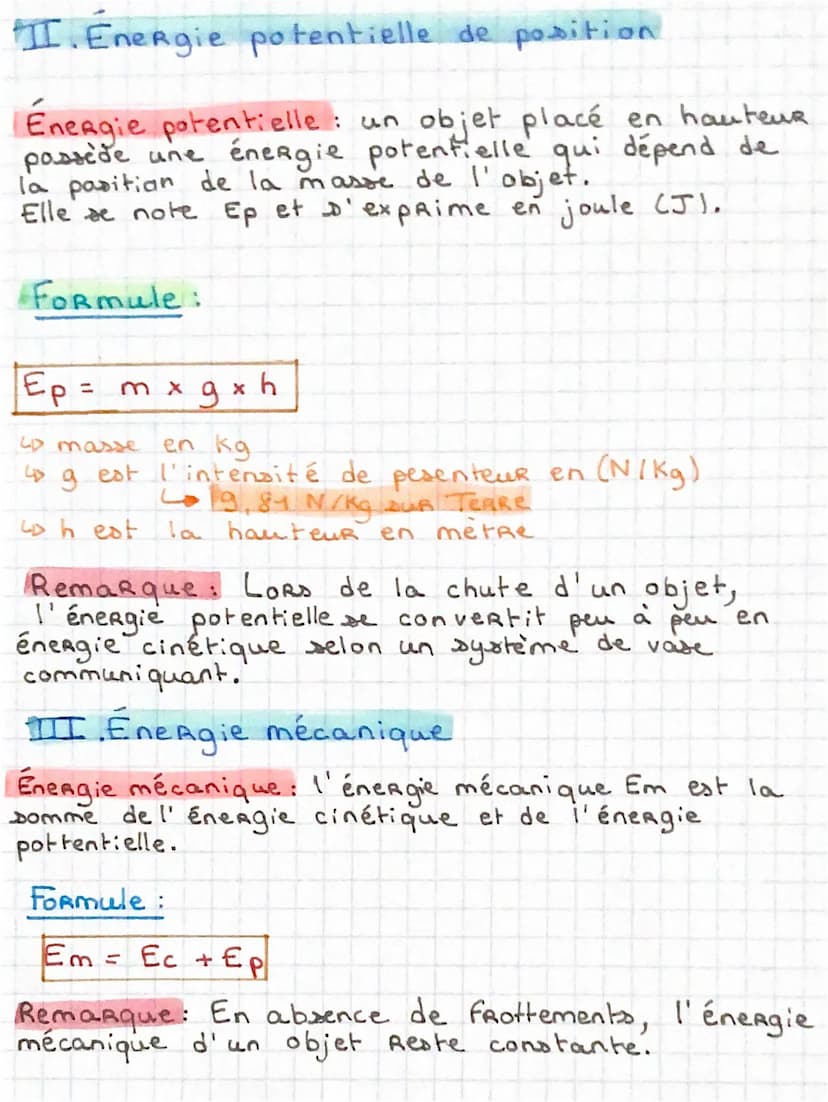 II. Énergie potentielle de position
Énergie potentielle : un objet placé en hauteur
possède une énergie potentielle qui dépend de
la position de la masse de l'objet.
Elle se note Ep et s'exprime en joule (J).
Formule :
Ep = m x g x h
↳ masse en kg
↳ g est l'intensité de pesenteur en (N/Kg)
↳ 9,81 N/Kg sur Terre
↳ h est la hauteur en mètre
Remarque : Lors de la chute d'un objet,
l'énergie potentielle se convertit peu à peu en
énergie cinétique selon un système de vase
communiquant.
III. Énergie mécanique
Énergie mécanique : l'énergie mécanique Em est la
somme de l'énergie cinétique et de l'énergie
pottentielle.
Formule :
Em = Ec + Ep
Remarque : En absence de frottements, l'énergie
mécanique d'un objet reste constante.